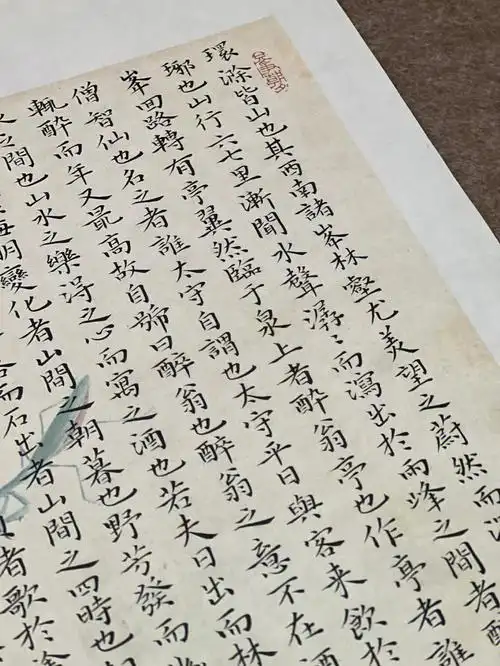 環滁皆山也其西南諸峯林壑尤美望之蔚然而
琊也山行六七里漸聞水聲潺〻而瀉出於兩峰之間者
峯回路轉有亭翼然臨于泉上者醉翁亭也作亭者誰
僧智仙也名之者誰太守自謂也太守平日與客來飲於
輒醉而年又最高故自號曰醉翁也醉翁之意不在酒
之間也山水之樂得之心而寓之酒也若夫日出而林
晦明變化者山間之朝暮也野芳發而
而石出者山間之四時也
者歌於